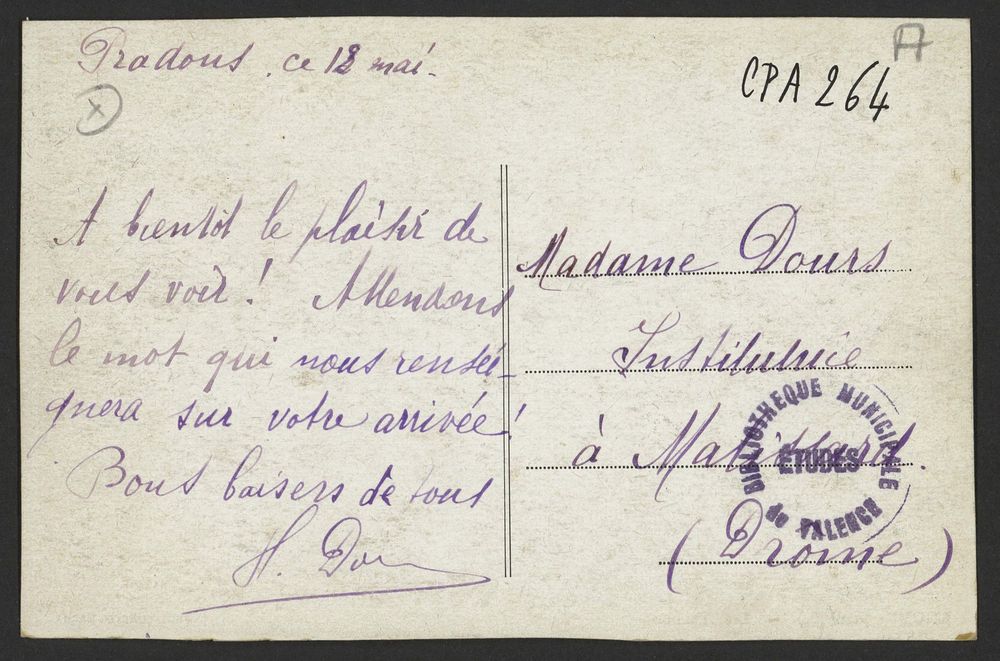 Pradons, ce 12 mai.
CPA 264
A bientôt le plaisir de
vous voir ! Attendons
le mot qui nous rensei-
gnera sur votre arrivée !
Bons baisers de tous
H.
Madame Dours
Institutrice
à
(Drome)
BIBLIOTHEQUE MUNICIPALE
ETUDES
de VALENCE